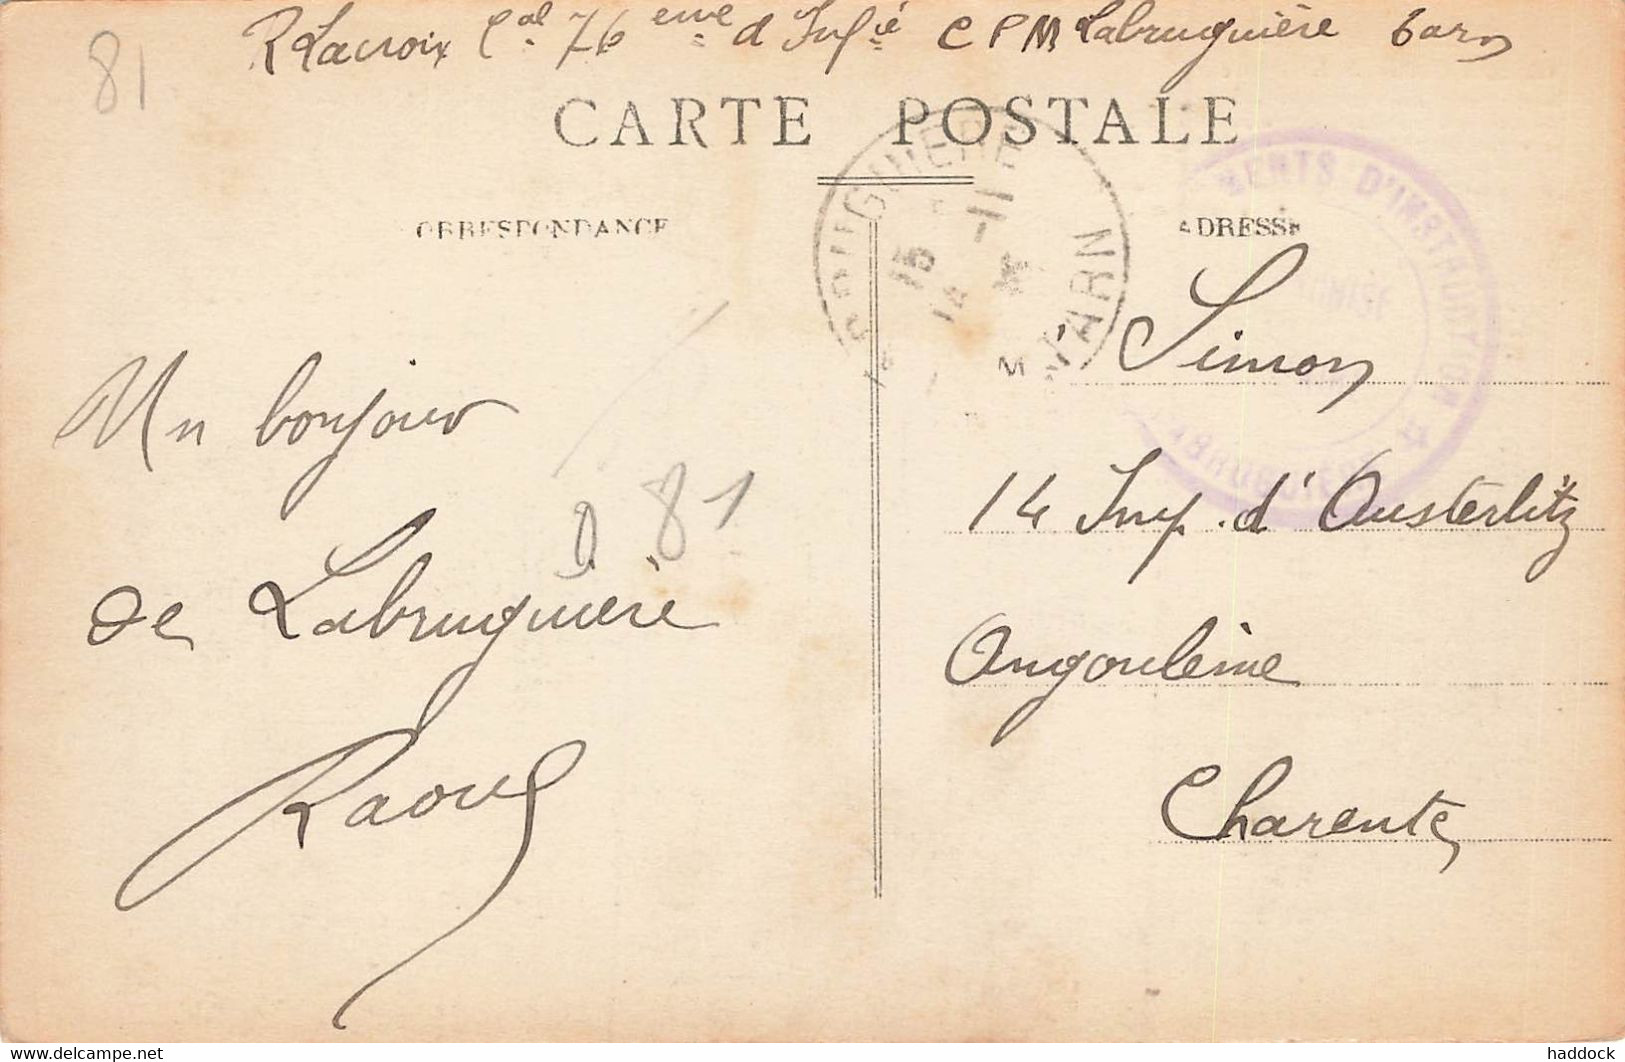 81
R Lacroix Cal 76eme d'Infie C P M Labruguière Tarn
CARTE POSTALE
CORRESPONDANCE
ADRESSE
15 -11
14
TARN
MENTS D'INSTRUCTION
Simon
Un bonjour
81
14 Imp. d'Austerlitz
de Labruguière
Angoulême
Raoul
Charente
www.delcampe.net
haddock